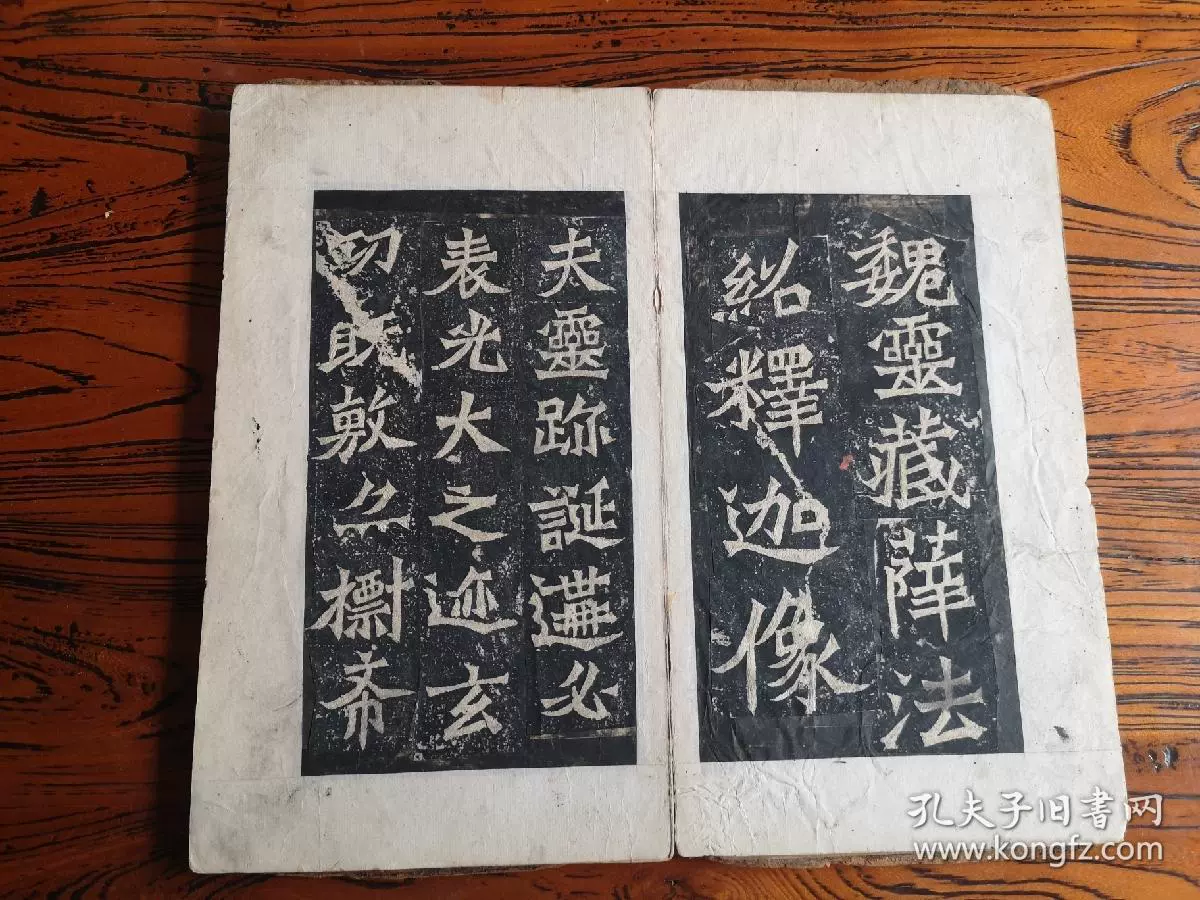 魏靈藏薛法
紹釋迦像
夫靈跡誕遘必
表光大之迹玄
功既敷亦標希
孔夫子旧书网
www.kongfz.com